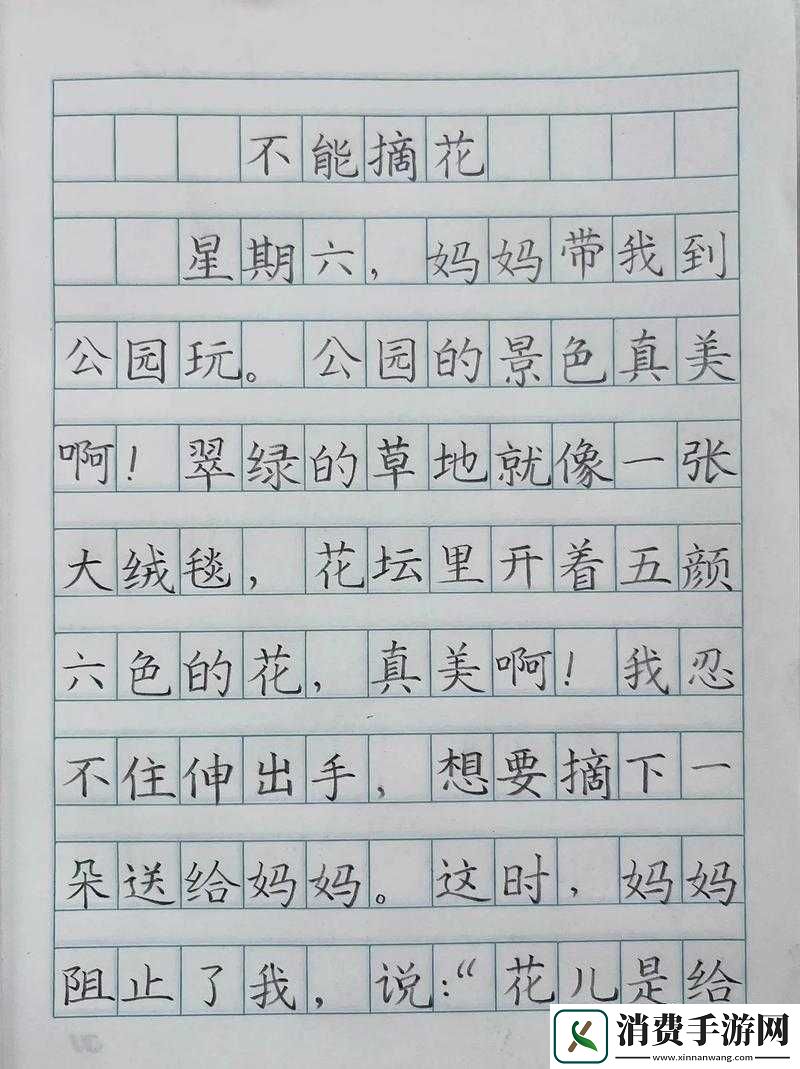 不能摘花
星期六，妈妈带我到
公园玩。公园的景色真美
啊！翠绿的草地就像一张
大绒毯，花坛里开着五颜
六色的花，真美啊！我忍
不住伸出手，想要摘下一
朵送给妈妈。这时，妈妈
阻止了我，说：“花儿是给
消费手游网
www.xinnanwang.com